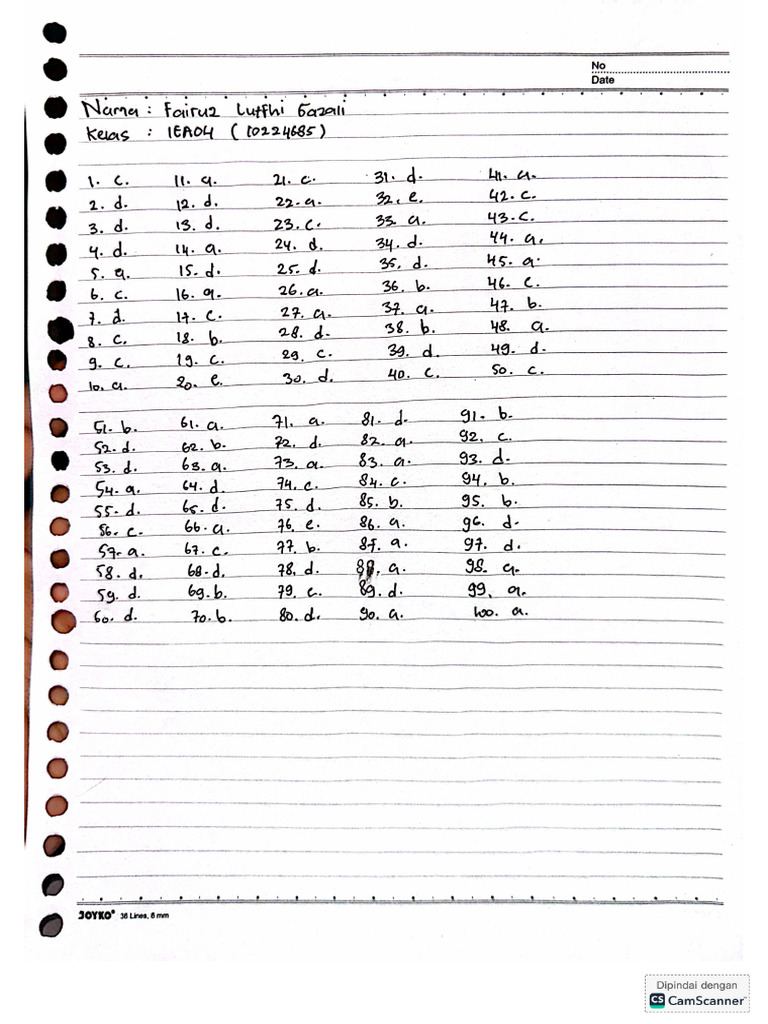 No
Date
Nama : Fairuz Lutfhi Gazali
Kelas : 1EA04 (10224685)
1. c. 11. a. 21. c. 31. d. 41. a.
2. d. 12. d. 22. a. 32. e. 42. c.
3. d. 13. d. 23. c. 33. a. 43. c.
4. d. 14. a. 24. d. 34. d. 44. a.
5. a. 15. d. 25. d. 35. d. 45. a.
6. c. 16. a. 26. a. 36. b. 46. c.
7. d. 17. c. 27. a. 37. a. 47. b.
8. c. 18. b. 28. d. 38. b. 48. a.
9. c. 19. c. 29. c. 39. d. 49. d.
10. a. 20. e. 30. d. 40. c. 50. c.
51. b. 61. a. 71. a. 81. d. 91. b.
52. d. 62. b. 72. d. 82. a. 92. c.
53. d. 63. a. 73. a. 83. a. 93. d.
54. a. 64. d. 74. c. 84. c. 94. b.
55. d. 65. d. 75. d. 85. b. 95. b.
56. c. 66. a. 76. e. 86. a. 96. d.
57. a. 67. c. 77. b. 87. a. 97. d.
58. d. 68. d. 78. d. 88. a. 98. a.
59. d. 69. b. 79. c. 89. d. 99. a.
60. d. 70. b. 80. d. 90. a. 100. a.
JOYKO® 36 Lines, 8 mm
Dipindai dengan
CS CamScanner